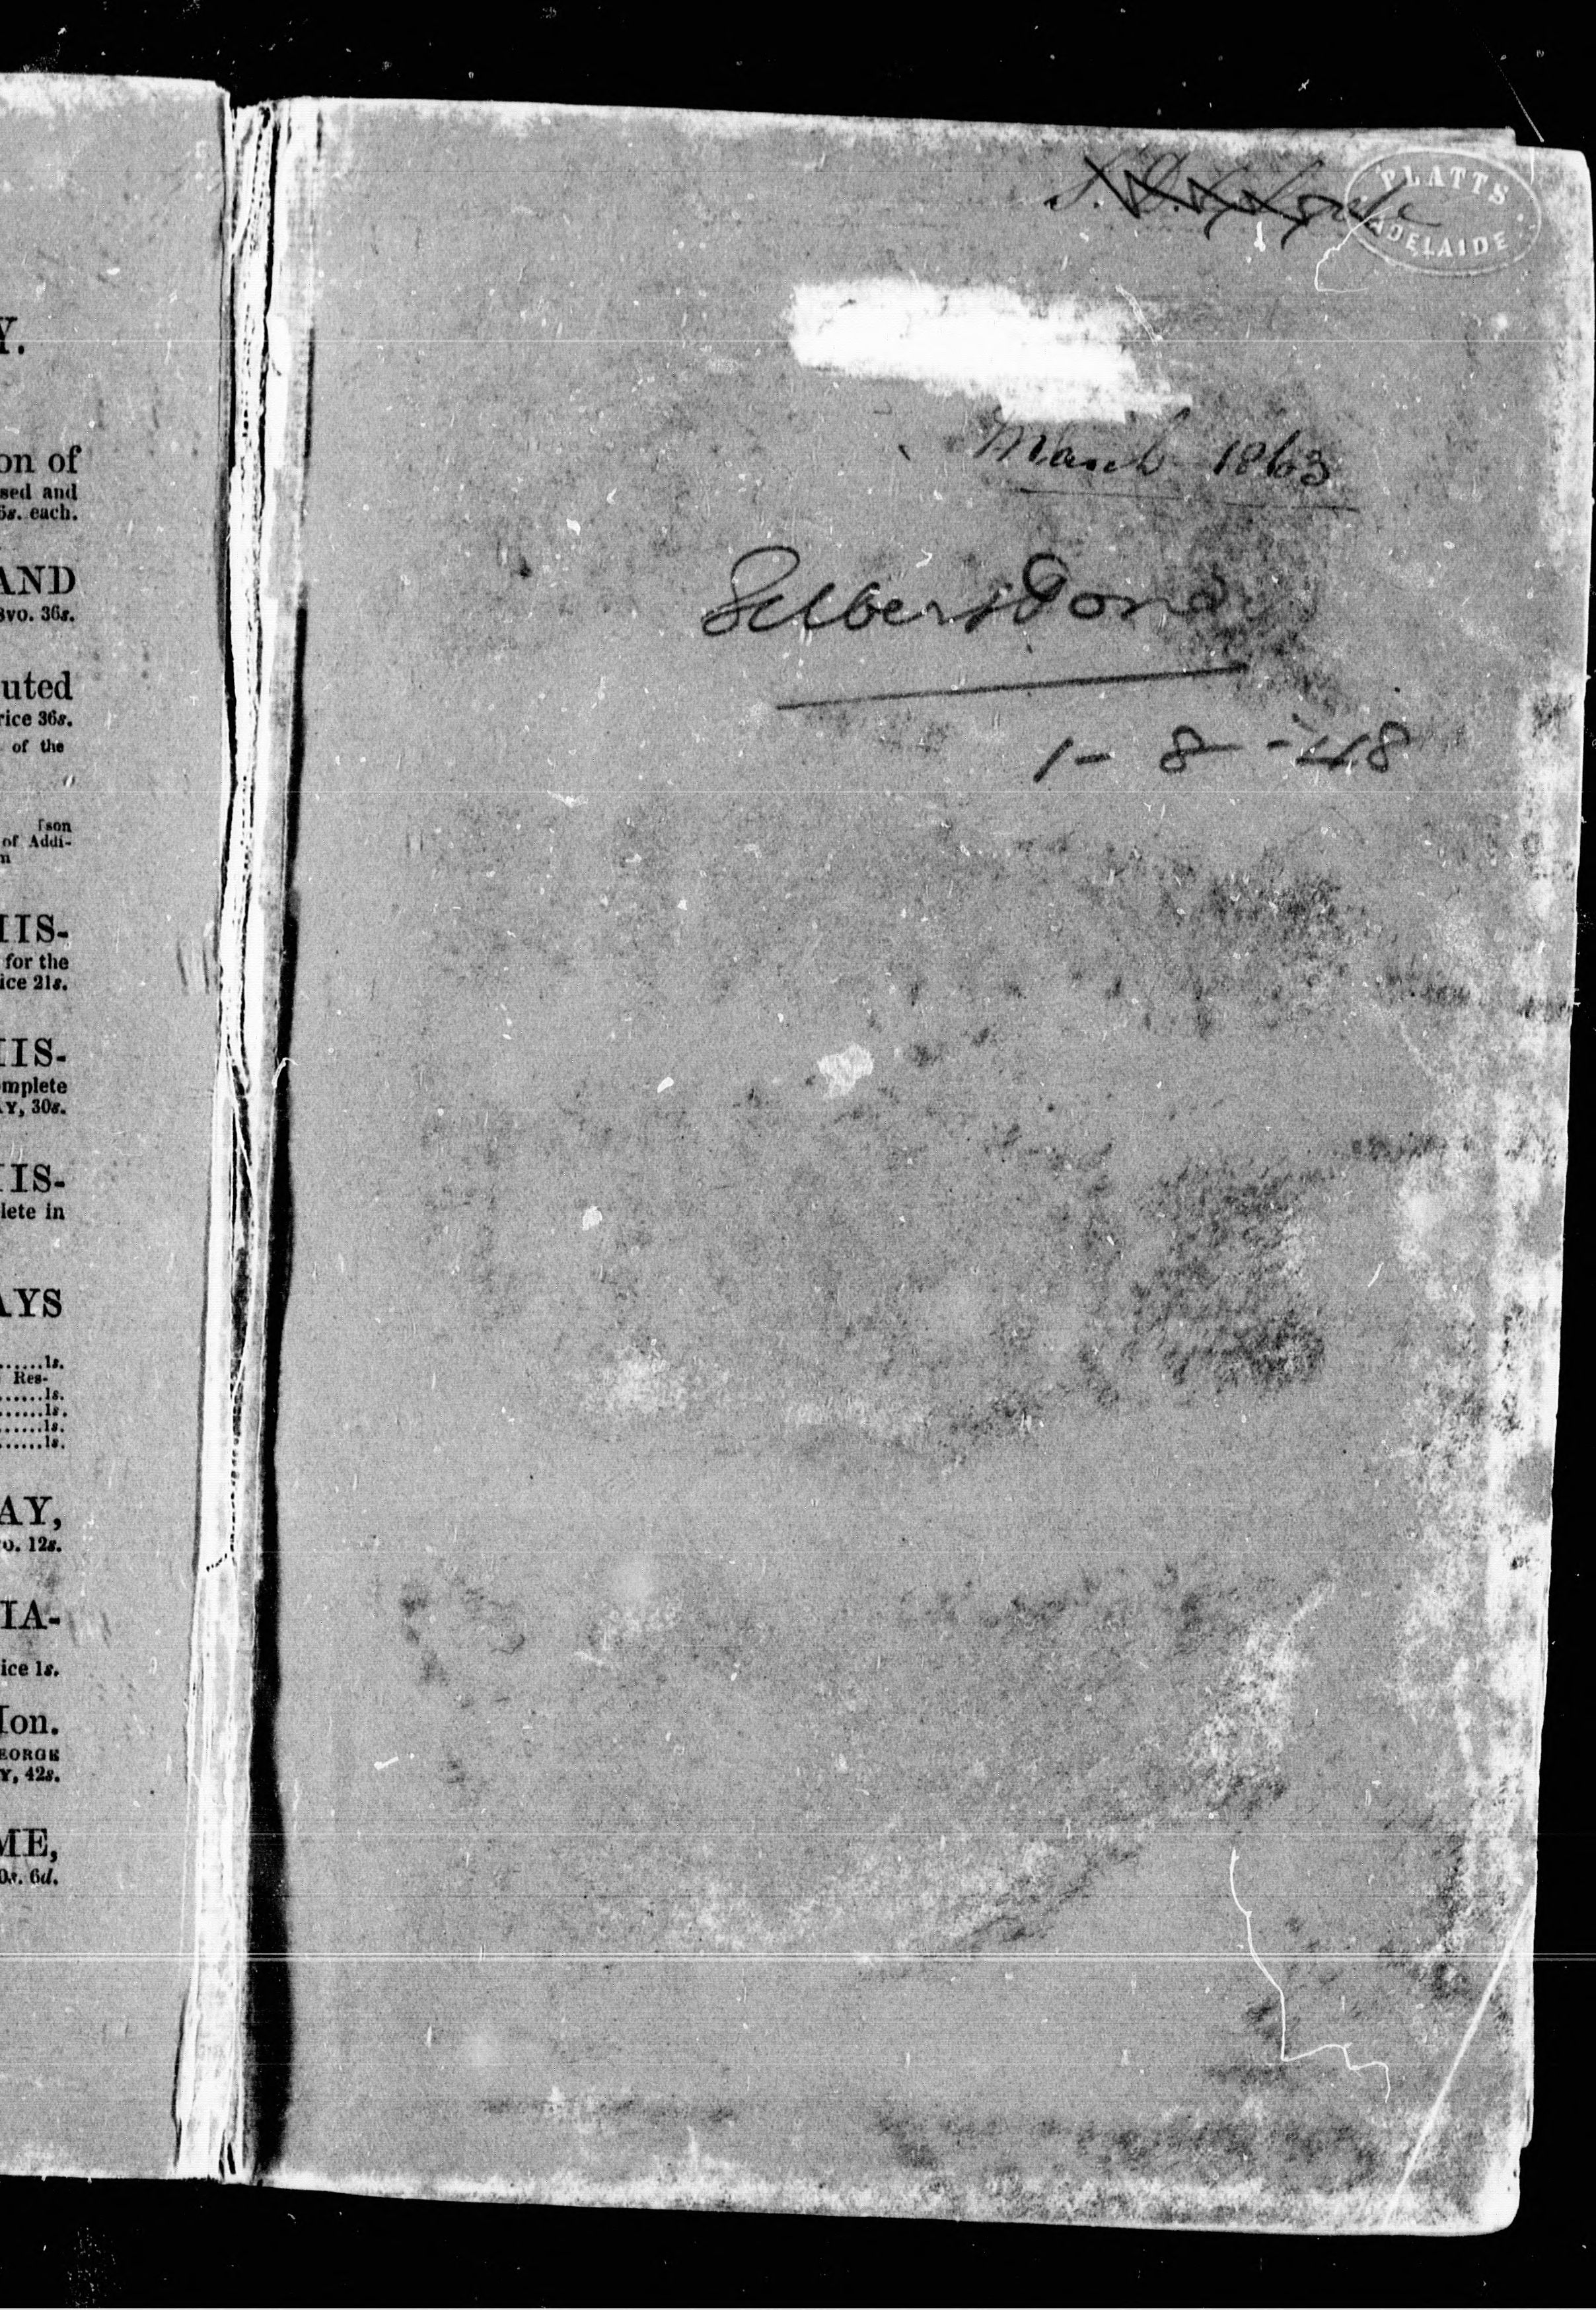 Y.
on of
sed and
6s. each.
AND
8vo. 36s.
uted
rice 36s.
of the
[son
of Addi-
m
HIS-
for the
ice 21s.
HIS-
omplete
AY, 30s.
HIS-
lete in
AYS
......1s.
Res-
......1s.
......1s.
......1s.
......1s.
AY,
vo. 12s.
IA-
ice 1s.
Hon.
EORGE
Y, 42s.
ME,
0s. 6d.
PLATTS
ADELAIDE
March 1863
1-8-48